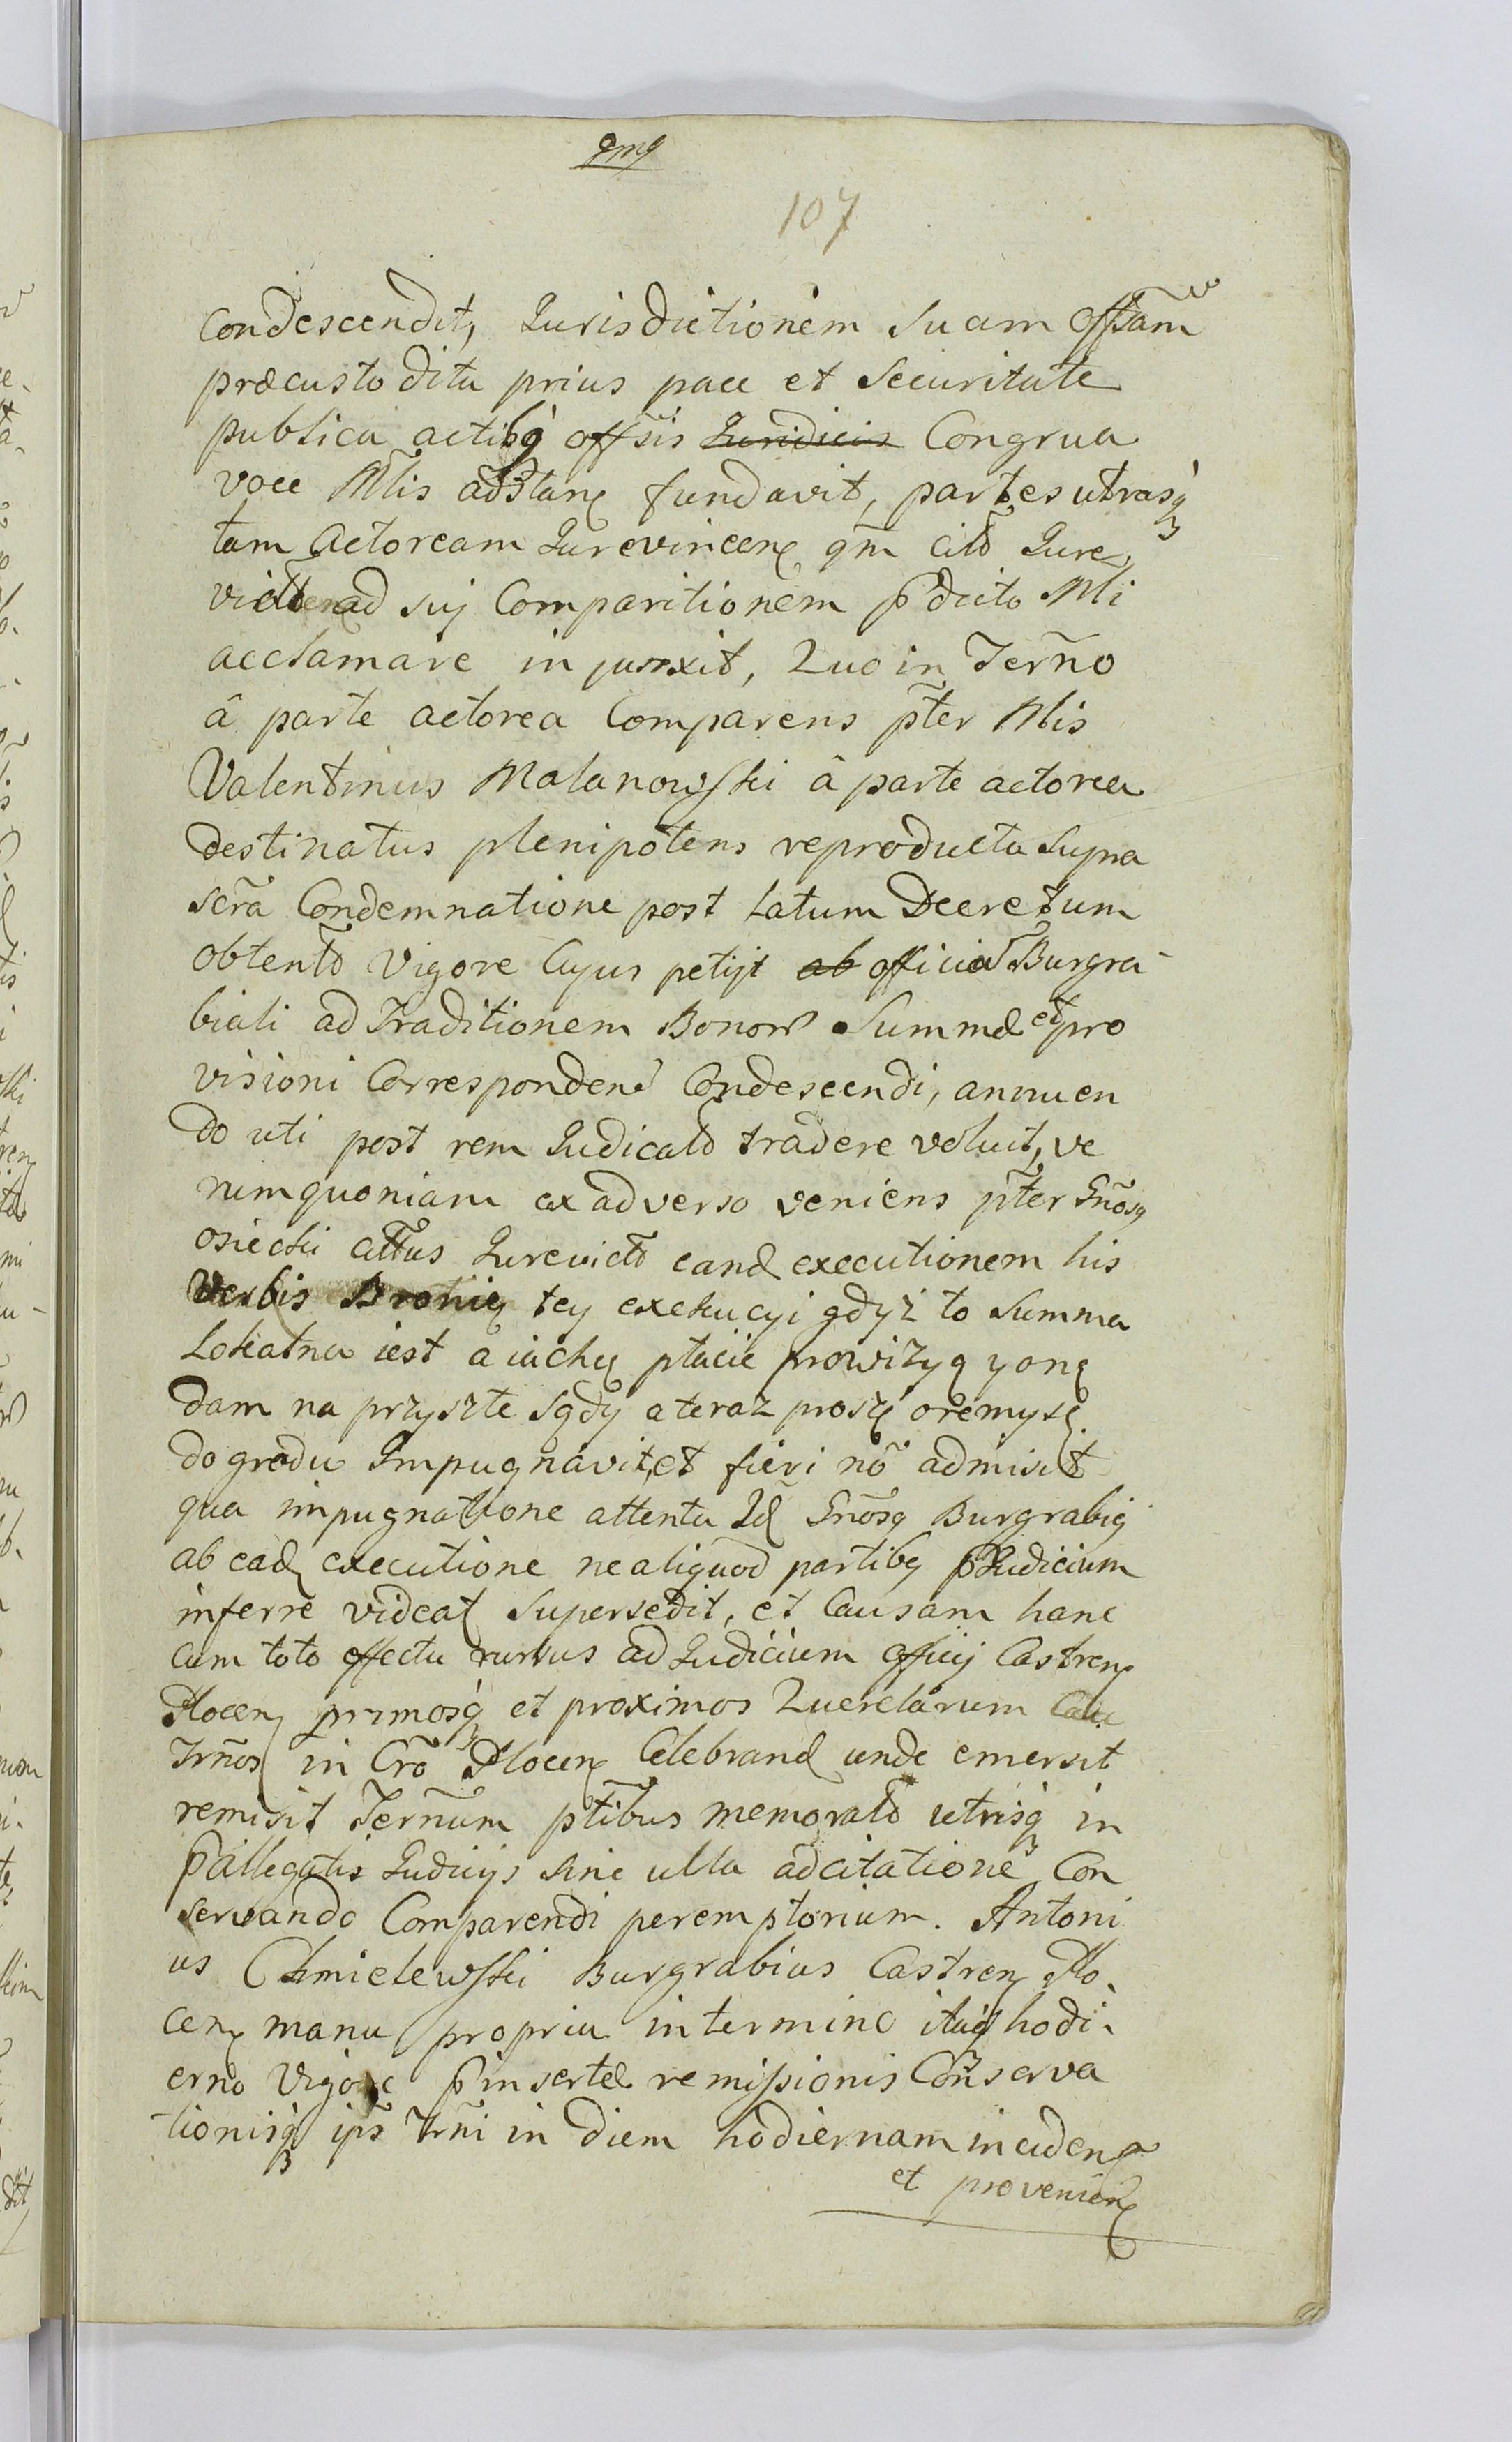 107
Condescendit, Jurisdictionem suam Offsam
præcustodita prius pace et Securitate
publica actibq offsis Juridicis Congrua
voce Mlis adstanę fundavit, partes utrasq
tam Actoream Jurevincenę qm cito Jure
victa ad suj Comparitionem pdicto Mli
acclamare injunxit, Quo in Terño
â parte actorea Comparens pter Mlis
Valentinus Malanowski â parte actorea
destinatus plenipotens reproducta supra
scra Condemnatione post latum Decretum
obtento Vigore Cujus petijt ab officio Burgra-
biali ad Traditionem Bonor Summæ et pro
visioni Correspondenę Condescendi, annuen
do uti post rem Judicato tradere voluit, ve
rum quoniam ex adverso veniens pter Gnosq
osiecki cittus Jurevicto eand executionem his
Verbis Bronię tey exekucyi gdyż to Summa
Lokatna iest a ia chcę płacic prowizyą y onę
dam na przyszłe sądy a teraz proszę o remyssę
do grodu Impugnavit, et fieri nõ admisit
qua impugnatione attenta Id Gnosq Burgrabiq
ab ead executione ne aliquod partibq pJudicium
inferre videat supersedit, et Causam hanc
cum toto effectu rursus ad Judicium Officij Castrenę
Plocenę primosq et proximos Querelarum
Trños in Cro Plocenę Celebrand unde emersit
remisit Ternum ptibus memorato utrisq in
pallegatis Judicijs sine ulla adcitatione Con
servando Comparendi peremptorium. Antoni
us Chmielewski Burgrabius Castrenę Plo-
cenę manu propria in termino itaq hodi-
erno Vigore pinsertæ remissionis Conserva
tionisq ips Trñi in diem hodiernam incidenę
et provenienę